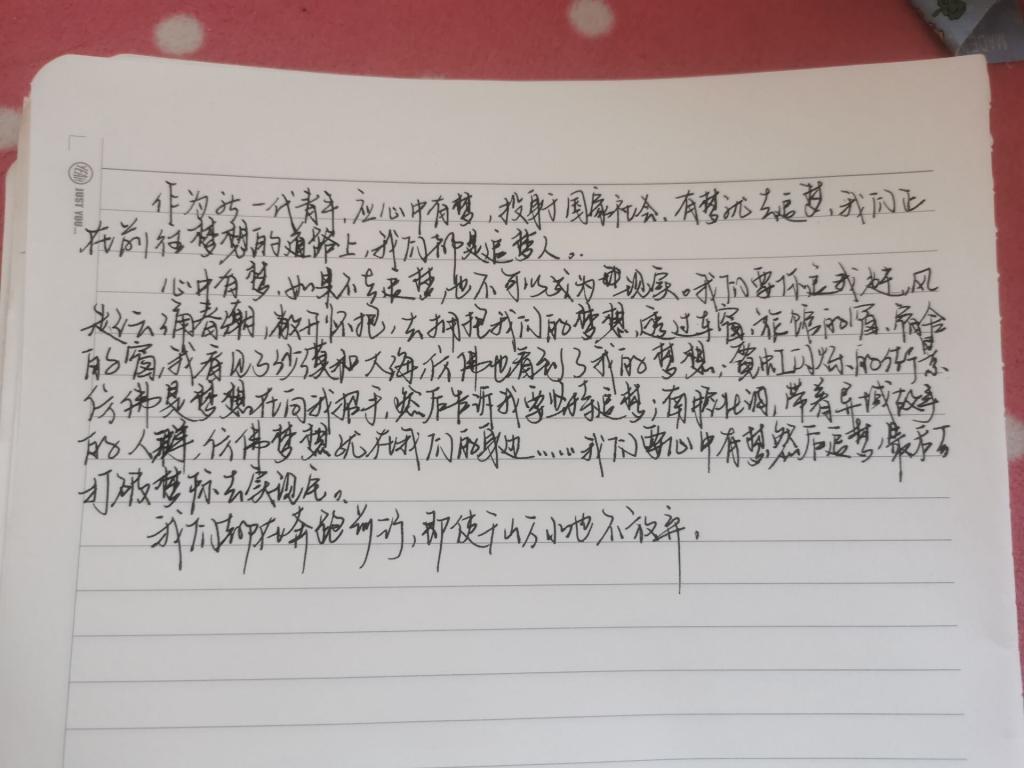 作为新一代青年,应心中有梦,投射于国家社会,有梦就去追梦,我们正
在前往梦想的道路上,我们都是追梦人。
心中有梦,如果不去追梦,也不可以成为现实。我们要你追我赶,风
起云涌春潮,敞开怀抱,去拥抱我们的梦想,透过车窗,旅馆的窗,宿舍
的窗,我看见了沙漠和大海,仿佛也看到了我的梦想;霓虹闪烁的街景
仿佛是梦想在向我招手,然后告诉我要坚持追梦;南腔北调,带着异域故事
的人群,仿佛梦想就在我们的身边……我们要心中有梦然后追梦,最后
打破梦 去实现它。
我们都在奔跑前行,即使千山万水也不放弃。
JUST YOU...
YEAH
MADE